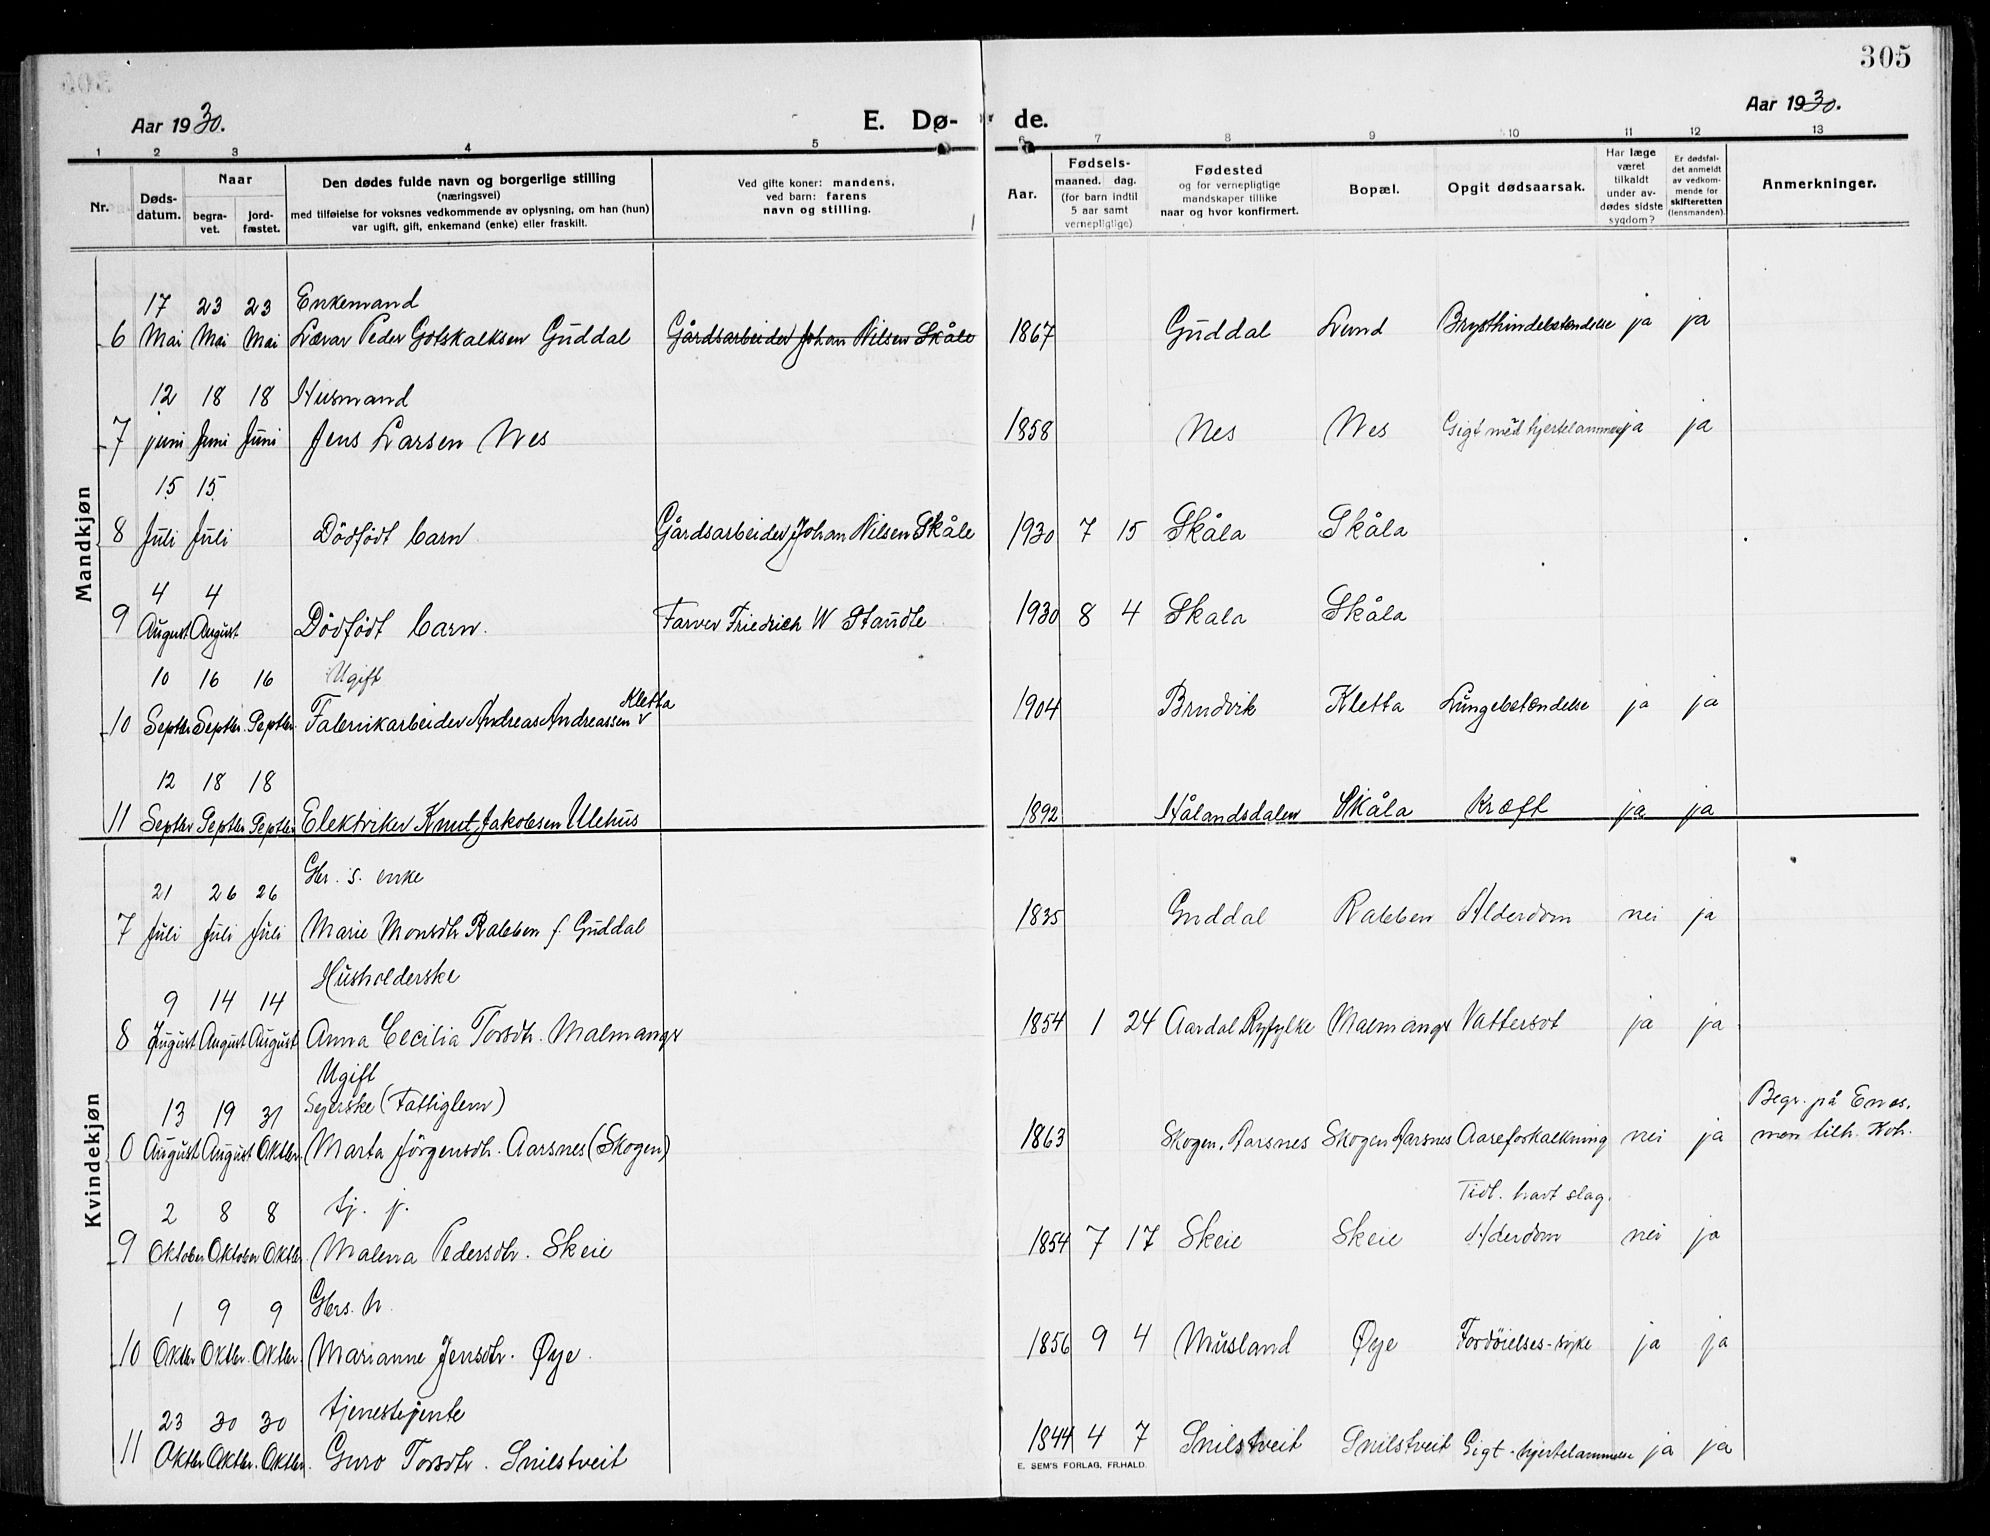 305
Aar 1930.
E. Dø- de.
Aar 1930.
1 2 3 4 5 6 7 8 9 10 11 12 13
Nr.
Døds-
datum.
Naar
begra-
vet.
jord-
fæstet.
Den dødes fulde navn og borgerlige stilling
(næringsvei)
med tilføielse for voksnes vedkommende av oplysning, om han (hun)
var ugift, gift, enkemand (enke) eller fraskilt.
Ved gifte koner: mandens,
ved barn: farens
navn og stilling.
Aar.
Fødsels-
maaned. dag.
(for barn indtil
5 aar samt
vernepligtige)
Fødested
og for vernepligtige
mandskaper tillike
naar og hvor konfirmert.
Bopæl.
Opgit dødsaarsak.
Har læge
været
tilkaldt
under av-
dødes sidste
sygdom?
Er dødsfal-
det anmeldt
av vedkom-
mende for
skifteretten
(lensmanden).
Anmerkninger.
Mandkjøn
17 23 23 Enkemand
6 Mai Mai Mai Lærar Peder Gotskalksen Guddal Gårdsarbeider Johan Nilsen Skåle 1867 Guddal Lund Brysthindebetændelse ja ja
12 18 18 Husmand
7 juni Juni Juni Jens Larsen Nes 1858 Nes Nes Gigt med hjertelammelse ja ja
15 15
8 Juli Juli Dödfödt barn Gårdsarbeider Johan Nilsen Skåle 1930 7 15 Skåla Skåla
4 4
9 August August Dödfödt barn. Farver Friedrich W Staudle 1930 8 4 Skala Skåla
10 16 16 Ugift
Kletta
10 Septbr Septbr. Septbr. Fabrikarbeider Andreas Andreassen 1904 Bruvik Kletta Lungebetændelse ja ja
12 18 18
11 Septbr Septbr Septbr Elektriker Knut Jakobsen Ulehus 1892 Hålandsdalen Skåla Kræft ja ja
Kvindekjøn
21 26 26 Gbr. s. enke
7 Juli Juli Juli Marie Monsdtr Rabben f. Guddal 1835 Guddal Rabben Alderdom nei ja
9 14 14 Husholderske
8 August August August Anna Cecilia Torsdtr. Malmangr 1854 1 24 Aardal Ryfylke Malmangr Vattersot ja ja
Ugift
13 19 31 Syerske (Fattiglem) Begr. på Enes,
0 August August Oktbr. Marta Jörgensdtr. Aarsnes (Skogen) 1863 Skogen, Aarsnes Skogen Aarsnes Aareforkalkning nei ja men tilh. Kvh.
2 8 8 tj. j. Tidl. havt slag.
9 Oktober Oktober Oktbr. Malena Pedersdtr. Skeie 1854 7 17 Skeie Skeie Alderdom nei ja
1 9 9 Gbrs. h.
10 Oktbr. Oktbr. Oktbr. Marianne Jensdtr. Øye. 1856 9 4 Musland Øye Fordöielses-syke ja ja
23 30 30 tjenestejente
11 Oktbr Oktbr. Oktbr. Guro Torsdtr. Snilstveit 1844 4 7 Snilstveit Snilstveit Gigt-hjertelammelse ja ja
E. SEM'S FORLAG, FR.HALD.